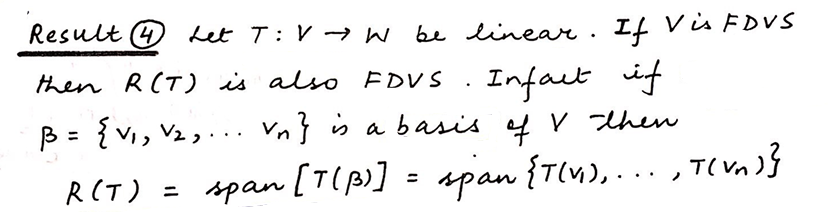 Result ④ Let T : V → W be linear. If V is FDVS
then R(T) is also FDVS. Infact if
β = {v₁, v₂, ... vₙ} is a basis of V then
R(T) = span [T(β)] = span {T(v₁), . . . , T(vₙ)}